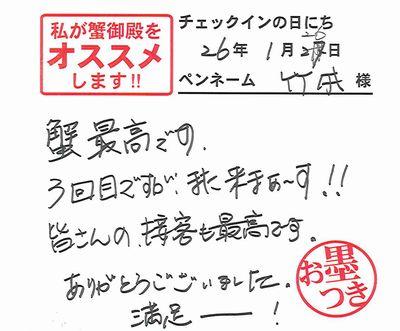 私が蟹御殿を
オススメ
します!!
チェックインの日にち
26年 1月26日
ペンネーム 竹氏 様
蟹最高です.
3回目ですが、また来まぁ～す!!
皆さんの、接客も最高です。
ありがとうございました.
満足――!
お墨つき